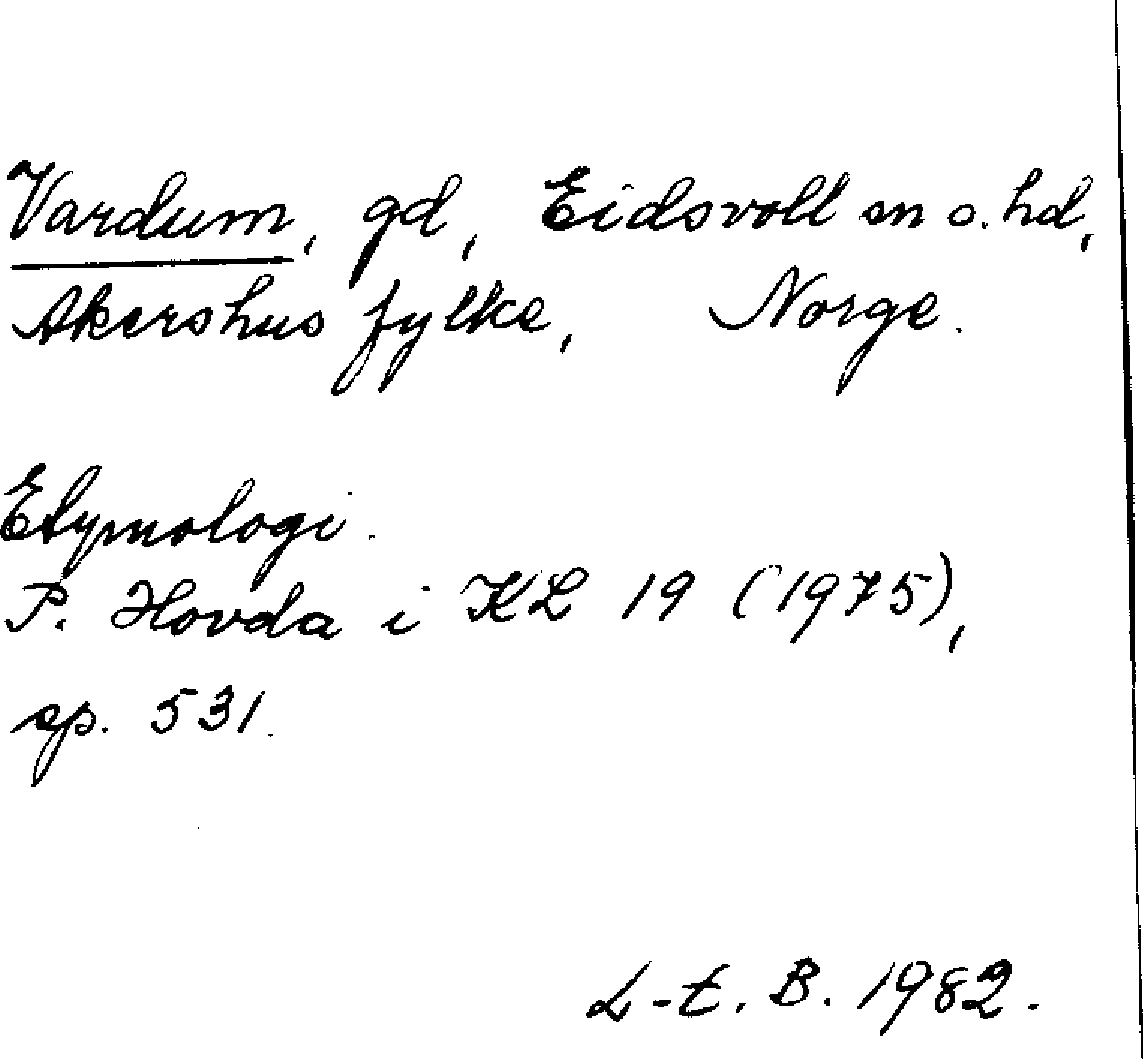 Vardum, gd, Eidsvoll sn o. hd,
Akershus fylke, Norge.
Etymologi.
P. Hovda i KL 19 (1975),
sp. 531.
L-E. B. 1982.